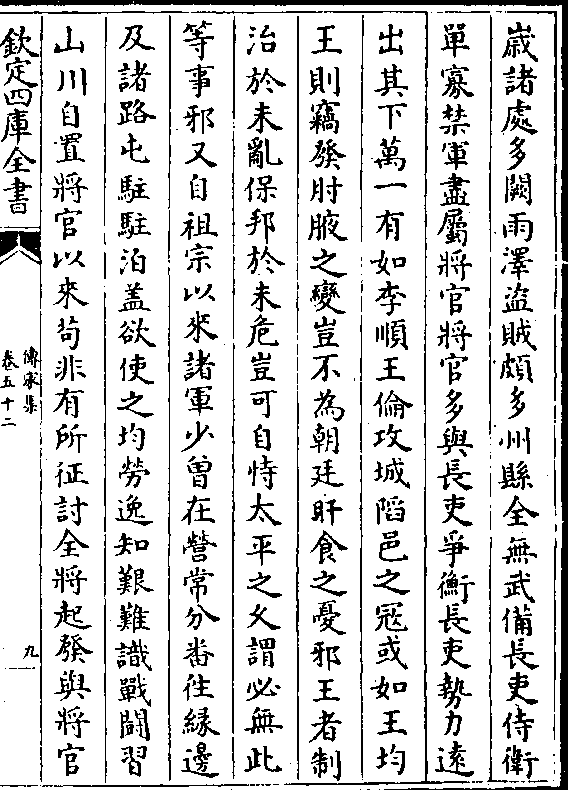 歳諸處多闕雨澤盗賊頗多州縣全無武備長吏侍衛
單寡禁軍盡屬將官將官多與長吏爭衡長吏勢力逺
出其下萬一有如李順王倫攻城陷邑之冦或如王均
王則竊發肘腋之變豈不為朝廷旰食之憂邪王者制
治於未亂保邦於未危豈可自恃太平之久謂必無此
等事邪又自祖宗以來諸軍少曽在營常分番往縁邊
及諸路屯駐駐泊盖欲使之均勞逸知艱難識戰鬭習
山川自置將官以來茍非有所征討全將起發與將官
欽定四庫全書
傳家集
卷五十二
九